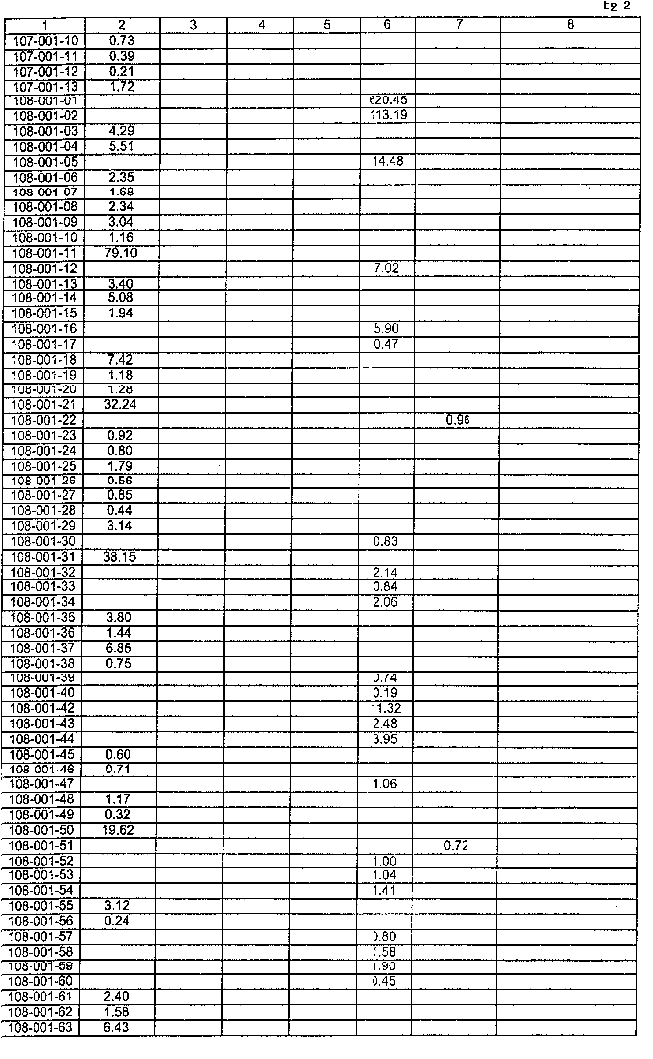 Eg 2
1 2 3 4 5 6 7 8
107-001-10 0.73
107-001-11 0.39
107-001-12 0.21
107-001-13 1.72
108-001-01
108-001-02
108-001-03 4.29
108-001-04 5.51
108-001-05 14.48
108-001-06 2.35
108-001-07 1.68
108-001-08 2.34
108-001-09 3.04
108-001-10 1.16
108-001-11 79.10
108-001-12 7.02
108-001-13 3.40
108-001-14 5.08
108-001-15 1.94
108-001-16 5.90
108-001-17 0.47
108-001-18 7.42
108-001-19 1.18
108-001-20 1.28
108-001-21 32.24
108-001-22 0.96
108-001-23 0.92
108-001-24 0.80
108-001-25 1.79
108-001-26
108-001-27 0.85
108-001-28 0.44
108-001-29 3.14
108-001-30 0.83
108-001-31 38.15
108-001-32 2.14
108-001-33 0.84
108-001-34 2.06
108-001-35 3.80
108-001-36 1.44
108-001-37 6.86
108-001-38 0.75
108-001-39 0.74
108-001-40 0.19
108-001-42
108-001-43 2.48
108-001-44 3.95
108-001-45 0.60
108-001-46 0.71
108-001-47 1.06
108-001-48 1.17
108-001-49 0.32
108-001-50 19.62
108-001-51 0.72
108-001-52 1.00
108-001-53 1.04
108-001-54 1.41
108-001-55 3.12
108-001-56 0.24
108-001-57 0.80
108-001-58
108-001-59
108-001-60 0.45
108-001-61 2.40
108-001-62 1.58
108-001-63 6.43